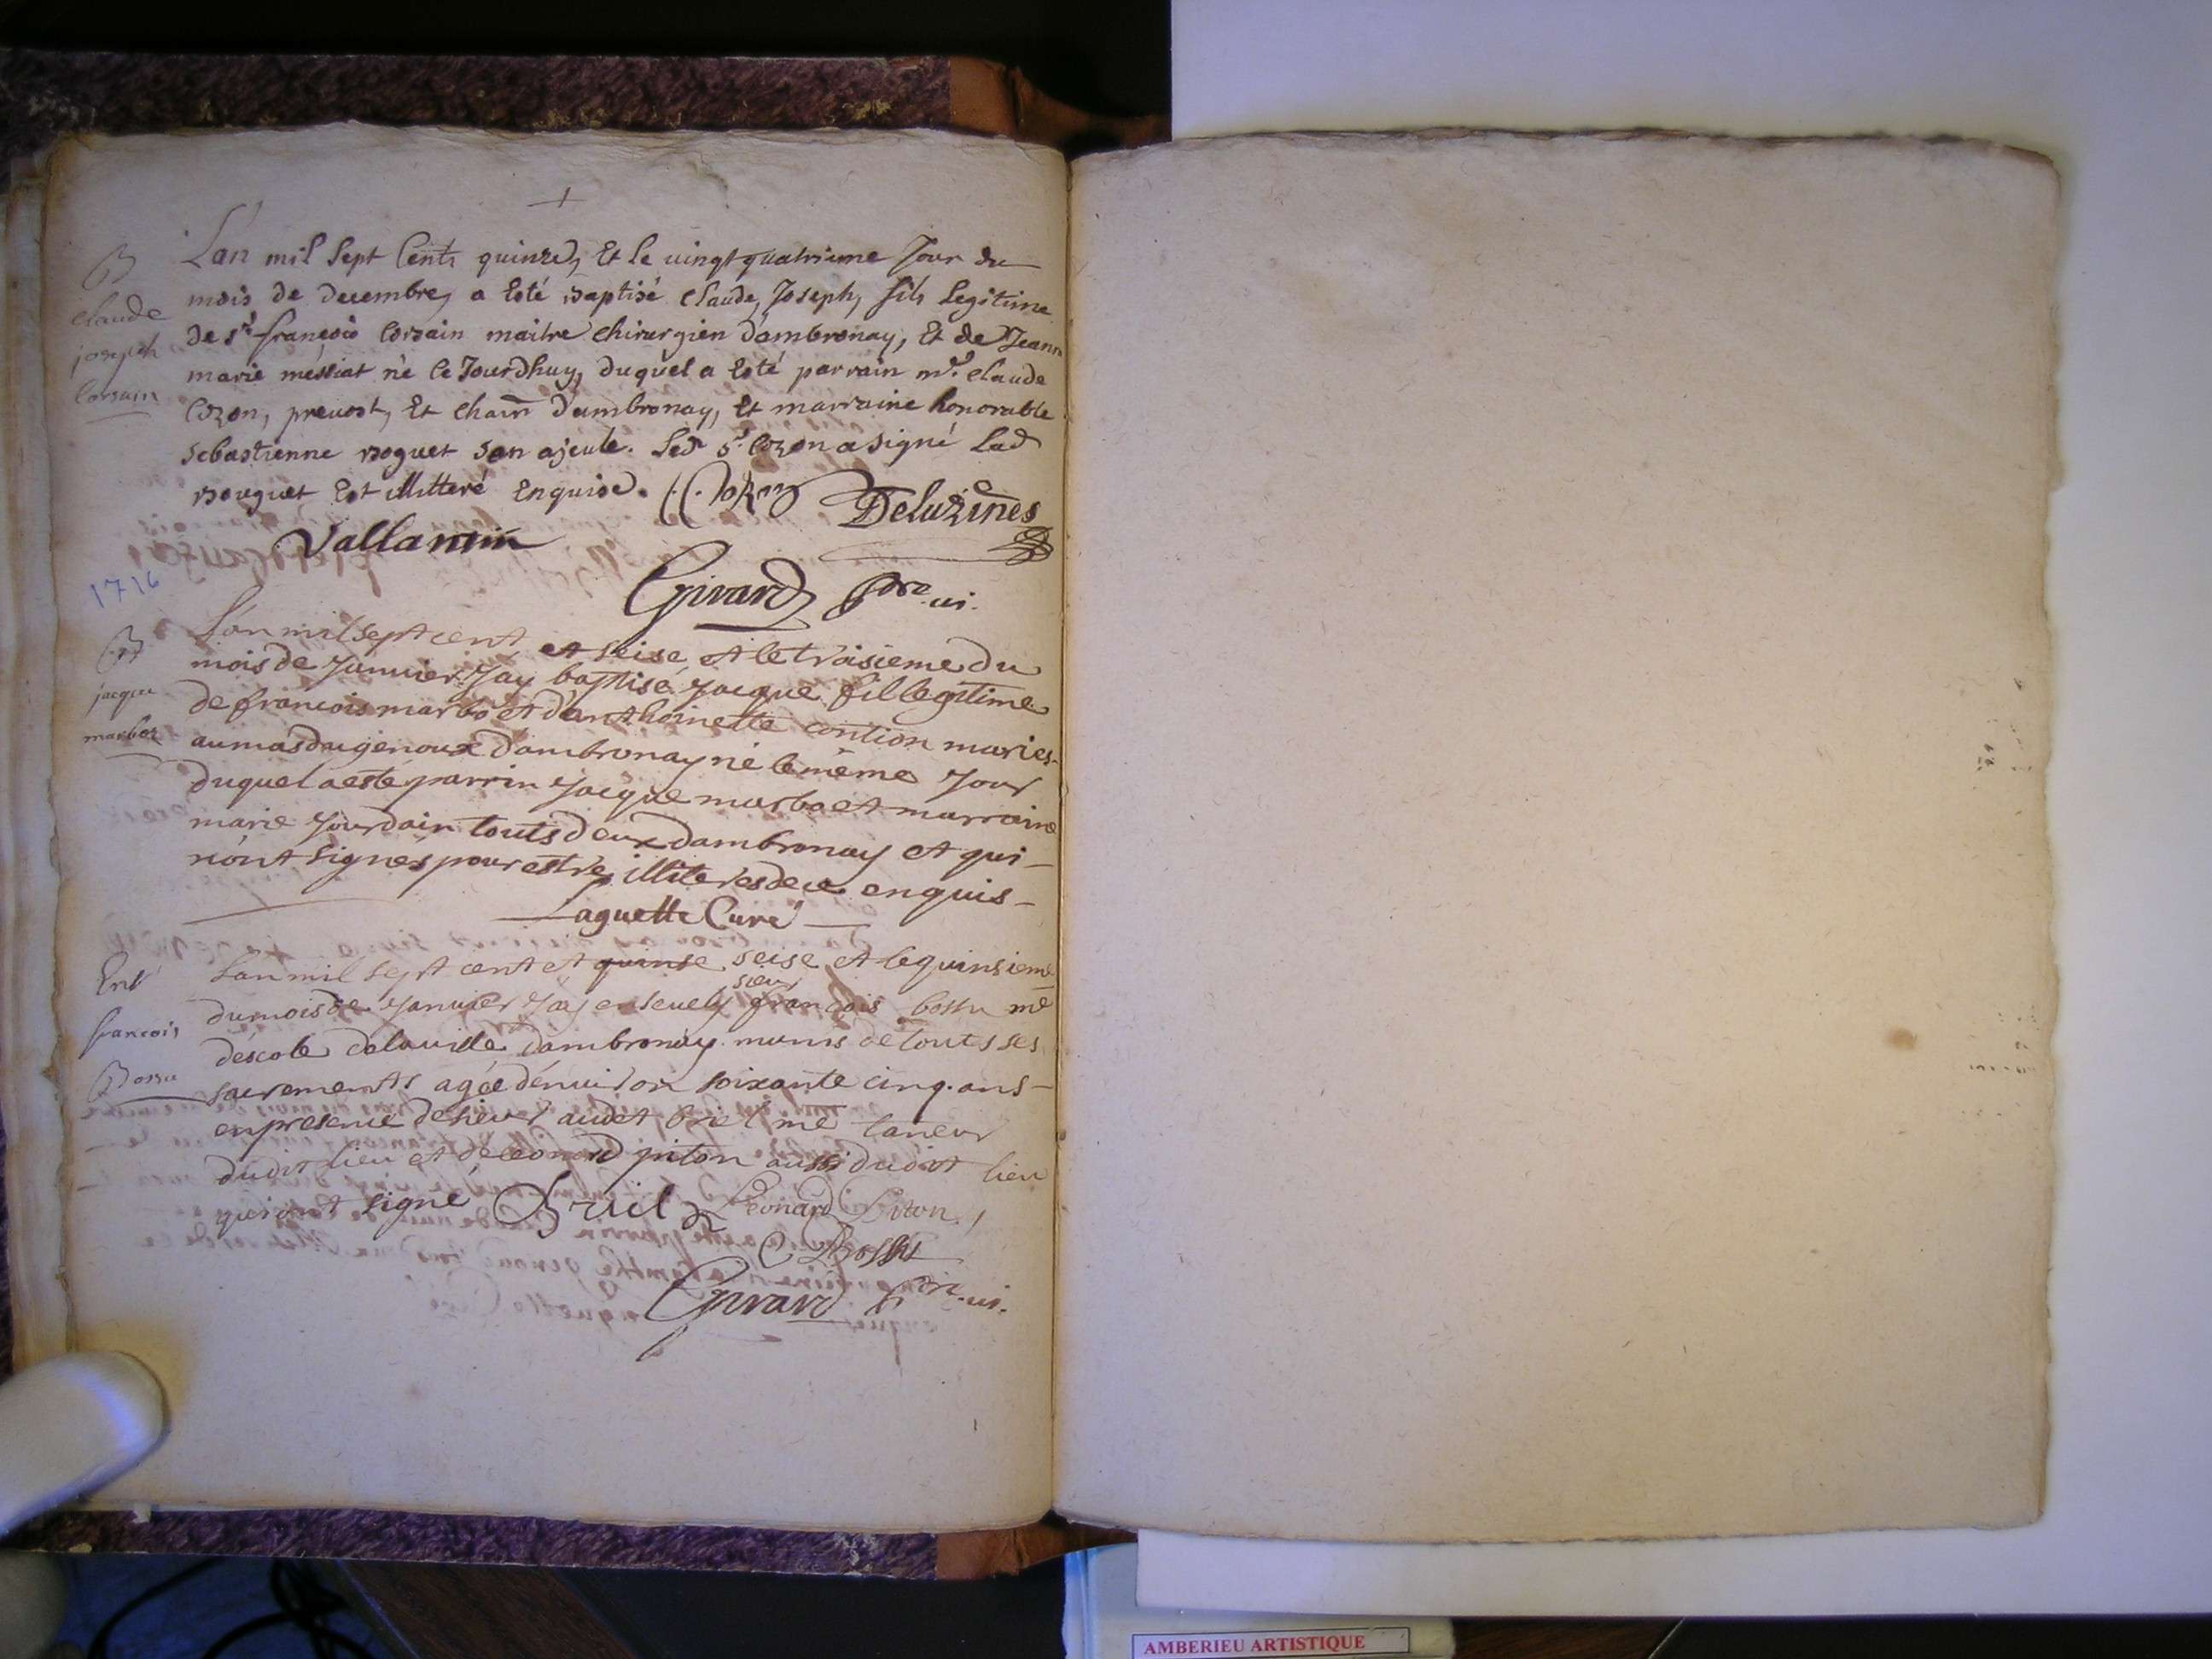 +
B
claude
joseph
Corsain
L'an mil Sept Cents quinze, Et le uingt quatrieme Jour du
mois de decembre, a Esté Baptisé Claude, Joseph, fils Legitime
de Sr françois Corsain maitre chirurgien d'ambronay, Et de Jeanne
marie messiat né ce Jourdhuy, duquel a Esté parrain mre. Claude
Cozon, preuost, Et Cham d'ambronay, Et marraine honorable
Sebastienne Boguet son ajeule. Led sr. Cozon a signé Lad
Bouguet Est illitteré Enquise. C. Cozon Deluzines
Vallamin
Girard ui.
1716
B
jacque
marboz
L'an mil sept cent et seise et le troisieme du
mois de Januier Jay baptisé Jacque fil legitime
de francois marbo et d'anthoinette contion maries
au mas dugenoux d'ambronay né le même Jour
duquel a esté parrin Jacque marbo et marraine
marie Jourdain touts deux dambronay et qui
nont signés pour estre illiteres de ce enquis
Laguette Curé
Ent
francois
Bossu
L'an mil sept cent et quinse seise et le quinsieme
du mois de Januier Jay enseuely sieur francois bossu me
déscole delauille dambronay munis de touts ses
sacrements agée dénuiron soixante cinq ans
en presence de sieur audet briel me taneur
dudit lieu et de leonard piton aussi dudit lieu
qui ont signé Bruil Leonard Piton
C Bossu
Girard ui.
AMBERIEU ARTISTIQUE